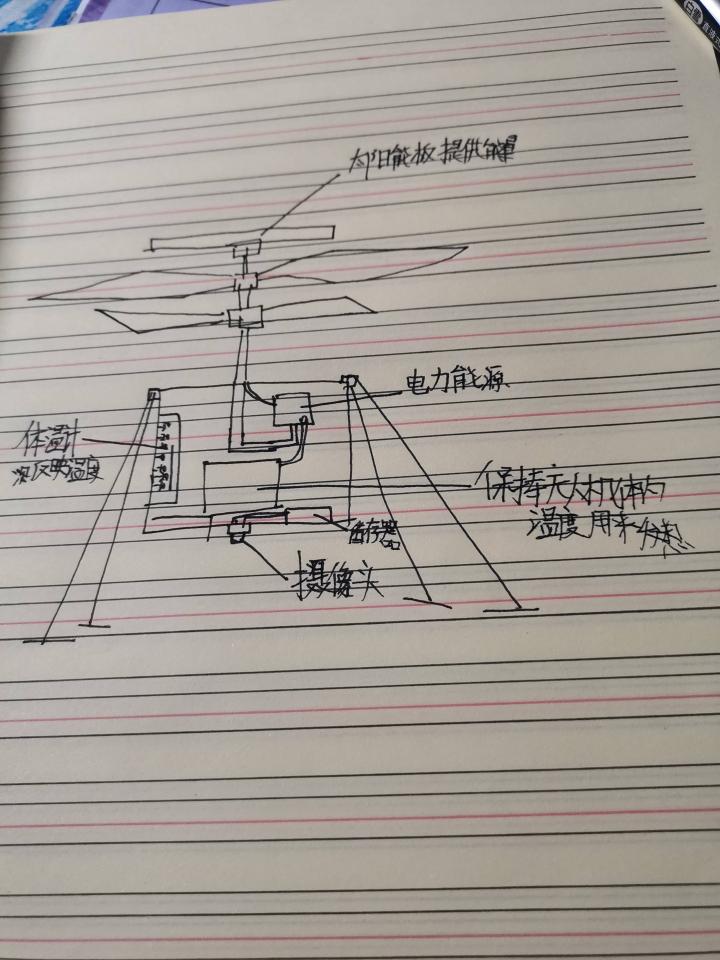 太阳能板提供能量
电力能源
体温计
反映温度
保持无人机体内
温度用来
储存器
摄像头